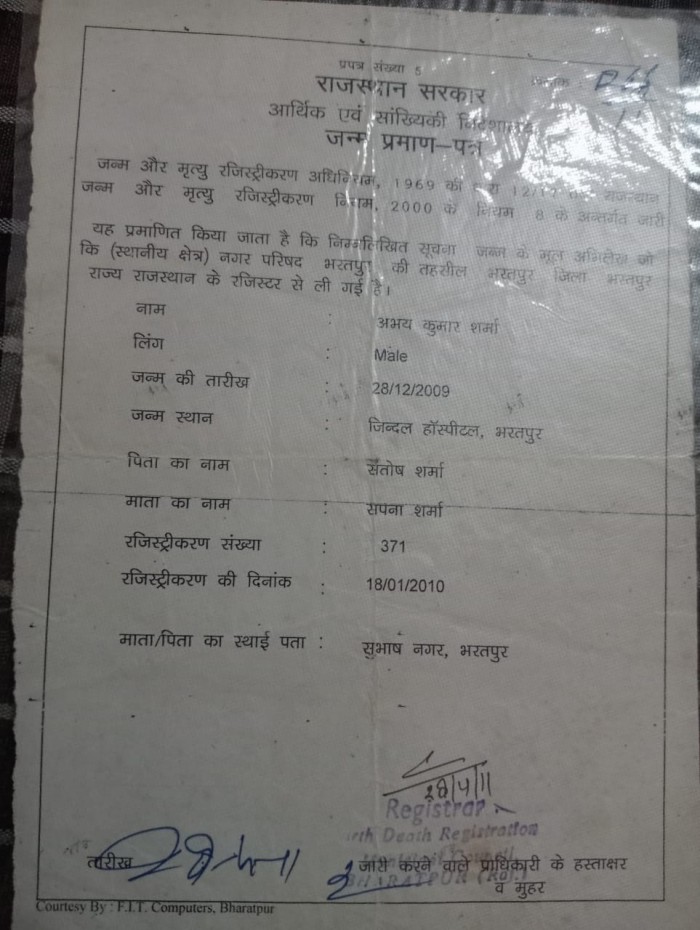 प्रपत्र संख्या 5
राजस्थान सरकार
आर्थिक एवं सांख्यिकी निदेशालय
जन्म प्रमाण-पत्र
जन्म और मृत्यु रजिस्ट्रीकरण अधिनियम, 1969 की धारा 12/17 राजस्थान
जन्म और मृत्यु रजिस्ट्रीकरण नियम, 2000 के नियम 8 के अन्तर्गत जारी
यह प्रमाणित किया जाता है कि निम्नलिखित सूचना जन्म के मूल अभिलेख जो
कि (स्थानीय क्षेत्र) नगर परिषद भरतपुर की तहसील भरतपुर जिला भरतपुर
राज्य राजस्थान के रजिस्टर से ली गई है।
नाम : अभय कुमार शर्मा
लिंग : Male
जन्म की तारीख : 28/12/2009
जन्म स्थान : जिन्दल हॉस्पीटल, भरतपुर
पिता का नाम : संतोष शर्मा
माता का नाम : सपना शर्मा
रजिस्ट्रीकरण संख्या : 371
रजिस्ट्रीकरण की दिनांक : 18/01/2010
माता/पिता का स्थाई पता : सुभाष नगर, भरतपुर
Registrar
Death Registration
तारीख
जारी करने वाले प्राधिकारी के हस्ताक्षर
BHARATPUR (Raj.)
व मुहर
Courtesy By : F.I.T. Computers, Bharatpur